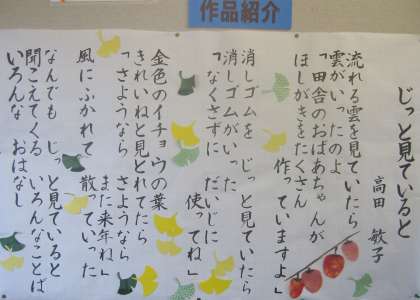 作品紹介
じっと見ていると
高田 敏子
流れる雲を見ていたら
雲がいったのよ
「田舎のおばあちゃんが
ほしがきをたくさん
作っていますよ」
消しゴムを じっと見ていたら
消しゴムがいった
「なくさずに だいじに
使ってね」
金色のイチョウの葉
きれいねと見とれてたら
「さようなら さようなら
また来年ね」
風にふかれて 散っていった
なんでも じっと見ていると
聞こえてくる いろんなことば
いろんな おはなし